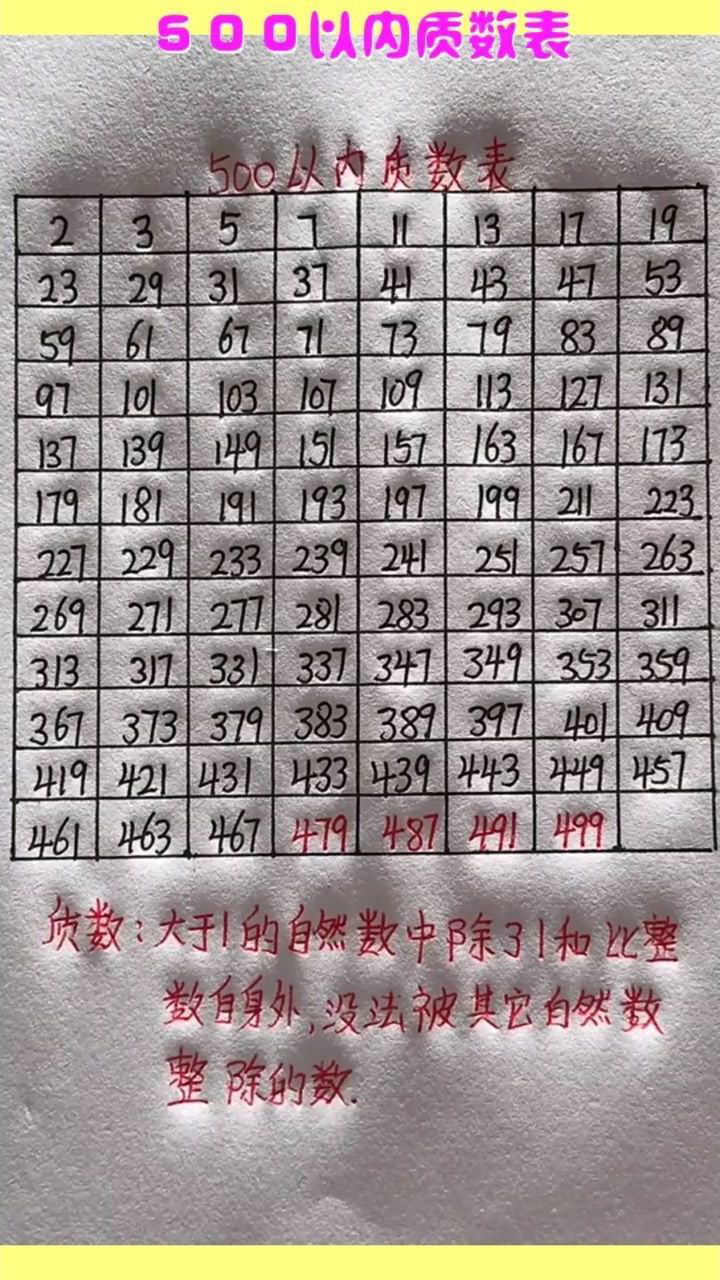 500以内质数表
500以内质数表
2 3 5 7 11 13 17 19
23 29 31 37 41 43 47 53
59 61 67 71 73 79 83 89
97 101 103 107 109 113 127 131
137 139 149 151 157 163 167 173
179 181 191 193 197 199 211 223
227 229 233 239 241 251 257 263
269 271 277 281 283 293 307 311
313 317 331 337 347 349 353 359
367 373 379 383 389 397 401 409
419 421 431 433 439 443 449 457
461 463 467 479 487 491 499
质数:大于1的自然数中除了1和比整
数自身外,没法被其它自然数
整除的数.